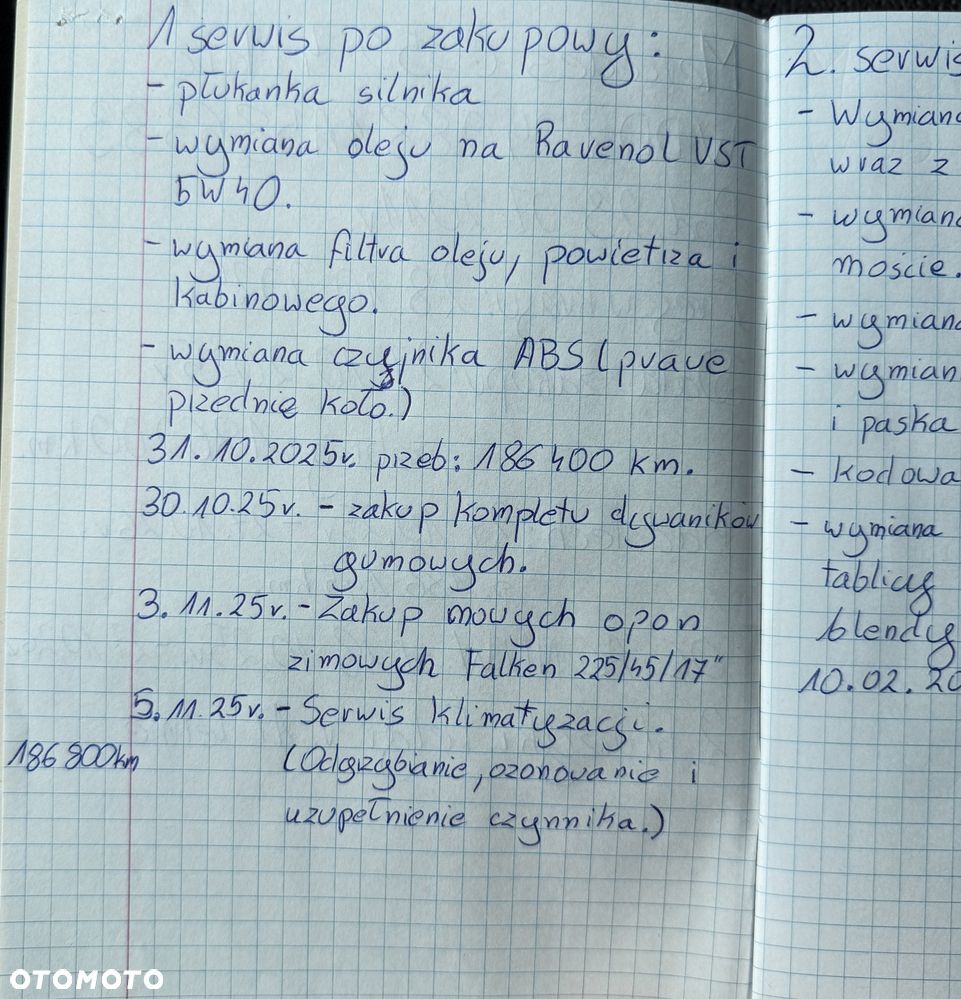 1 serwis po zakupowy:
- płukanka silnika
- wymiana oleju na Ravenol VST
5W40.
- wymiana filtra oleju, powietrza i
kabinowego.
- wymiana czyjnika ABS (prawe
przednie koło.)
31.10.2025r. przeb: 186 400 km.
30.10.25r. - zakup kompletu dywaników
gumowych.
3.11.25r. - Zakup nowych opon
zimowych Falken 225/45/17"
5.11.25r. - Serwis klimatyzacji.
186 800km (Odgrzybianie, ozonowanie i
uzupełnienie czynnika.)
2. serwis
- Wymiana
wraz z
- wymiana
moście.
- wymiana
- wymian
i paska
- kodowa
- wymiana
tablicy
blendy
10.02.20
OTOMOTO